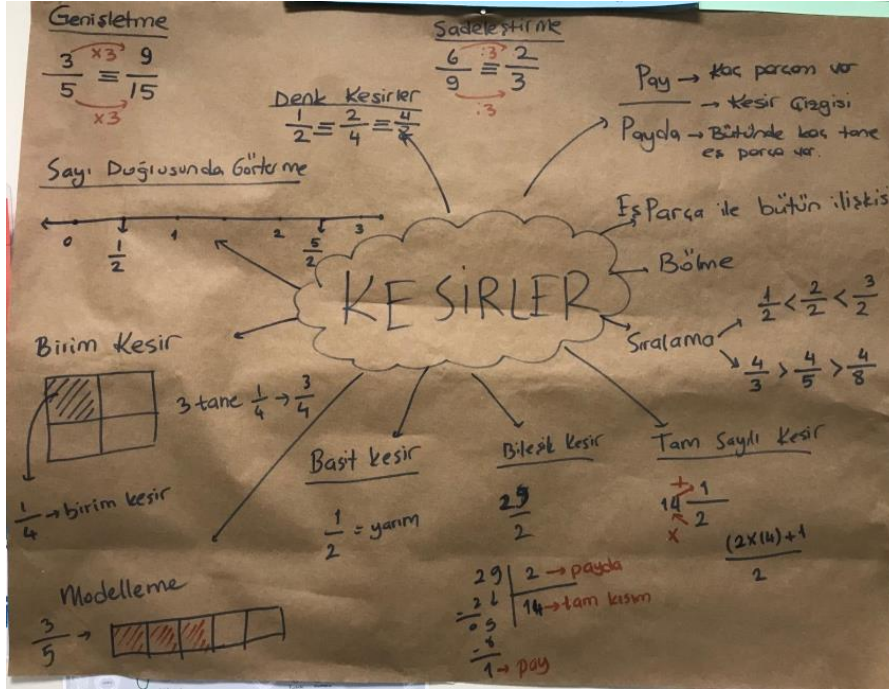 Genişletme
3/5 ≡ 9/15
x3
x3
Sadeleştirme
6/9 ≡ 2/3
:3
:3
Denk Kesirler
1/2 ≡ 2/4 ≡ 4/
Pay → Kaç parçam var
→ Kesir Çizgisi
Payda → Bütünde kaç tane
eş parça var.
Sayı Doğrusunda Gösterme
0 1/2 1 2 5/2 3
Eş Parça ile bütün ilişkis
Bölme
KESİRLER
Sıralama
1/2 < 2/2 < 3/2
4/3 > 4/5 > 4/8
Birim Kesir
3 tane 1/4 → 3/4
1/4 → birim kesir
Basit kesir
1/2 = yarım
Bileşik Kesir
29/2
29 | 2 → payda
14 → tam kısım
1 → pay
Tam Sayılı Kesir
14 1/2
+
x
(2x14)+1/2
Modelleme
3/5 →